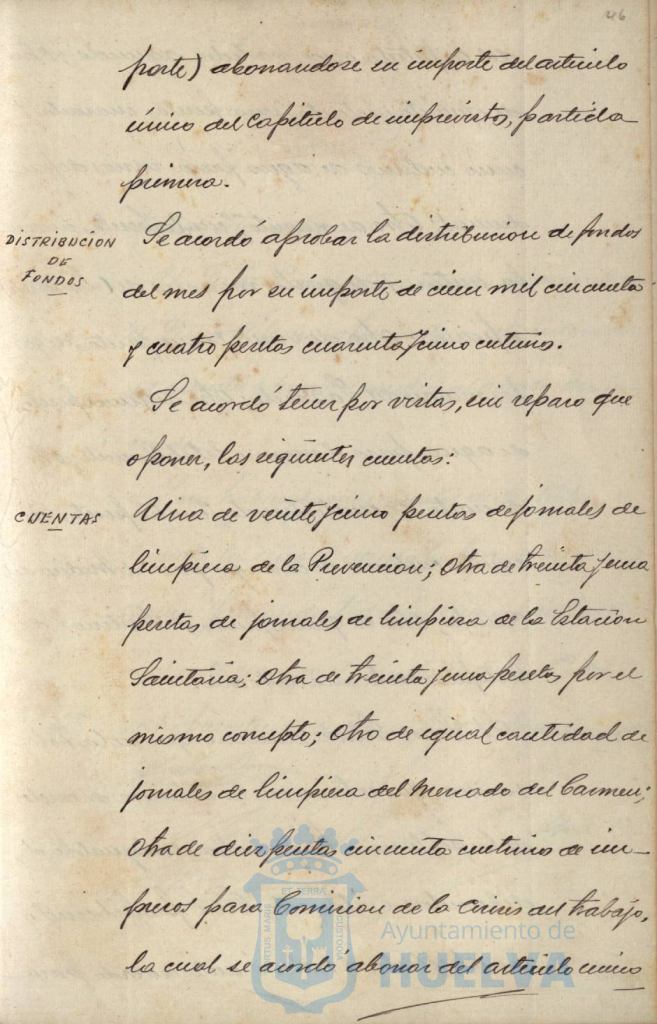 46
porte) abonandose su importe del articulo
único del Capitulo de imprevistos, partida
primera.
DISTRIBUCION
DE
FONDOS
Se acordó aprobar la distribucion de fondos
del mes por su importe de cien mil cincuenta
y cuatro pesetas cuarenta y cinco centimos.
Se acordó tener por vistas, sin reparo que
oponer, las siguientes cuentas:
CUENTAS
Una de veinte y cinco pesetas de jornales de
limpieza de la Prevencion; Otra de treinta y una
pesetas de jornales de limpieza de la Estacion
Sanitaria; Otra de treinta y una pesetas por el
mismo concepto; Otro de igual cantidad de
jornales de limpieza del Mercado del Carmen;
Otra de diez pesetas cincuenta centimos de im-
presos para Comision de la Crisis del trabajo,
la cual se acordó abonar del articulo unico
Ayuntamiento de
HUELVA